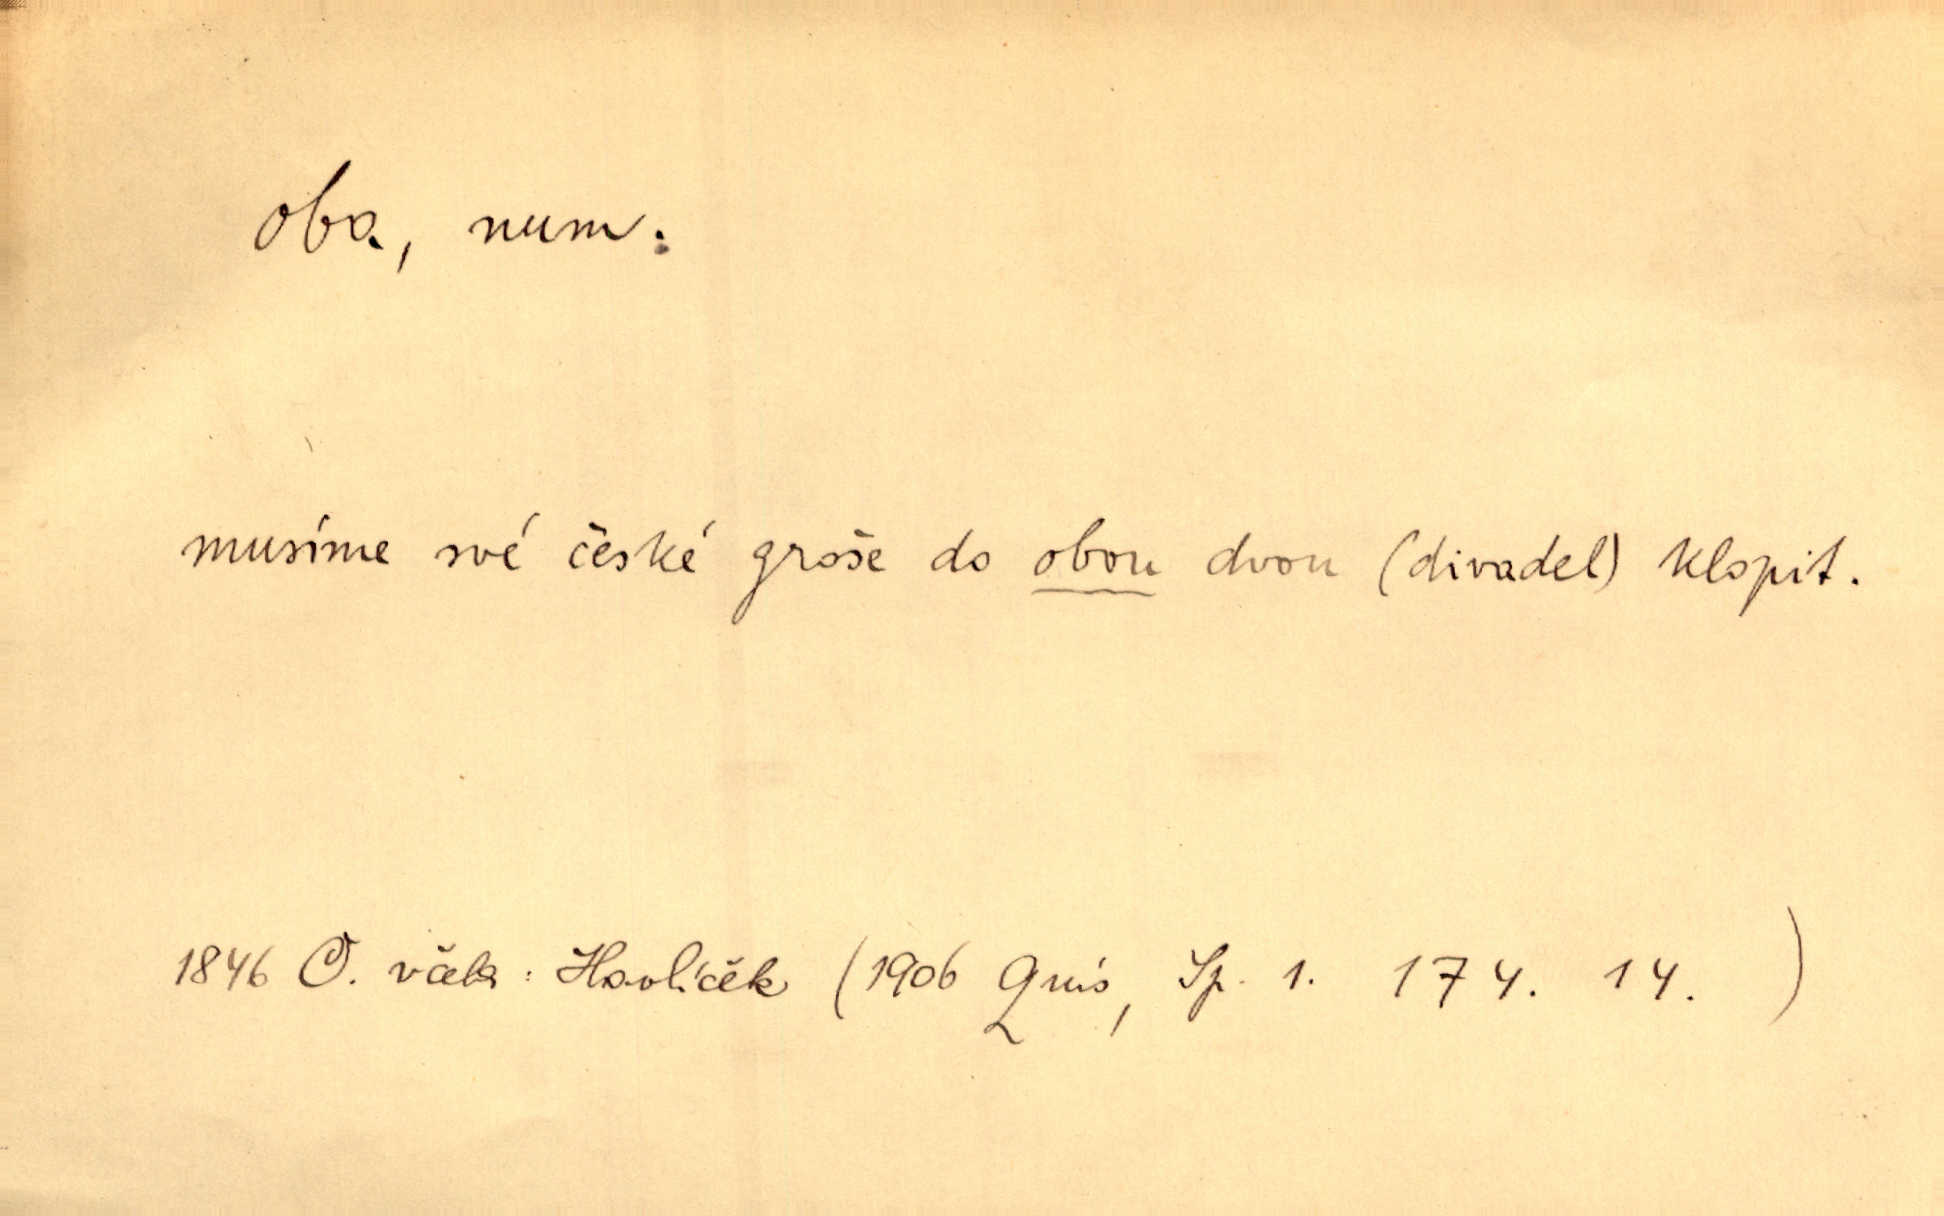 oba, num.
musíme své české groše do obou dvou (divadel) klopit.
1846 Č. včela : Havlíček (1906 Quis, Sp. 1. 174. 14. )